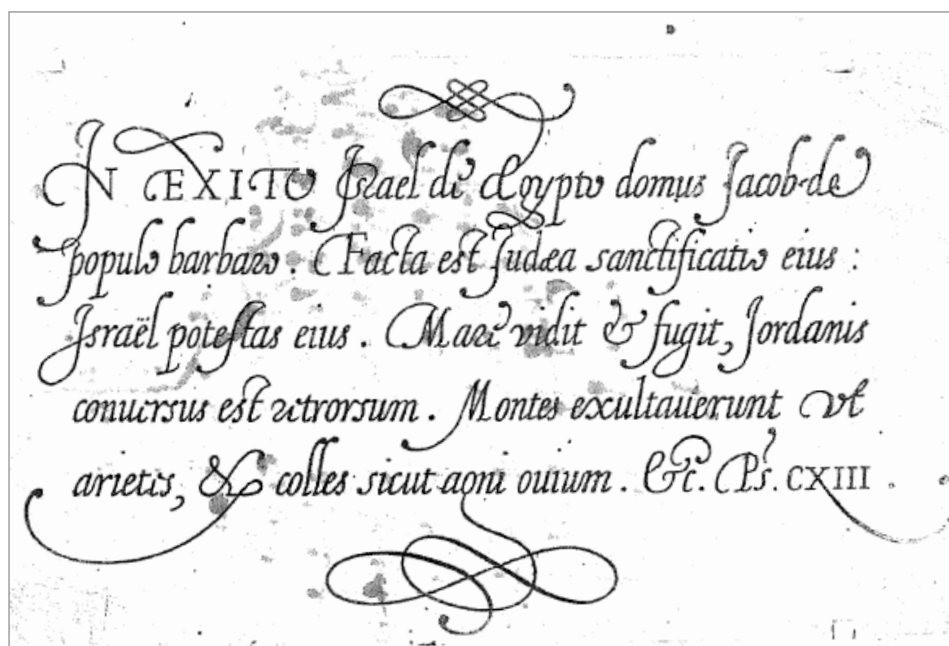 IN EXITU Israel de Ægypto domus Jacob de
populo barbaro. Facta est Judæa sanctificatio eius:
Israël potestas eius. Mare vidit & fugit, Jordanis
conuersus est retrorsum. Montes exultauerunt vt
arietes, & colles sicut agni ouium. &c. Ps. CXIII.